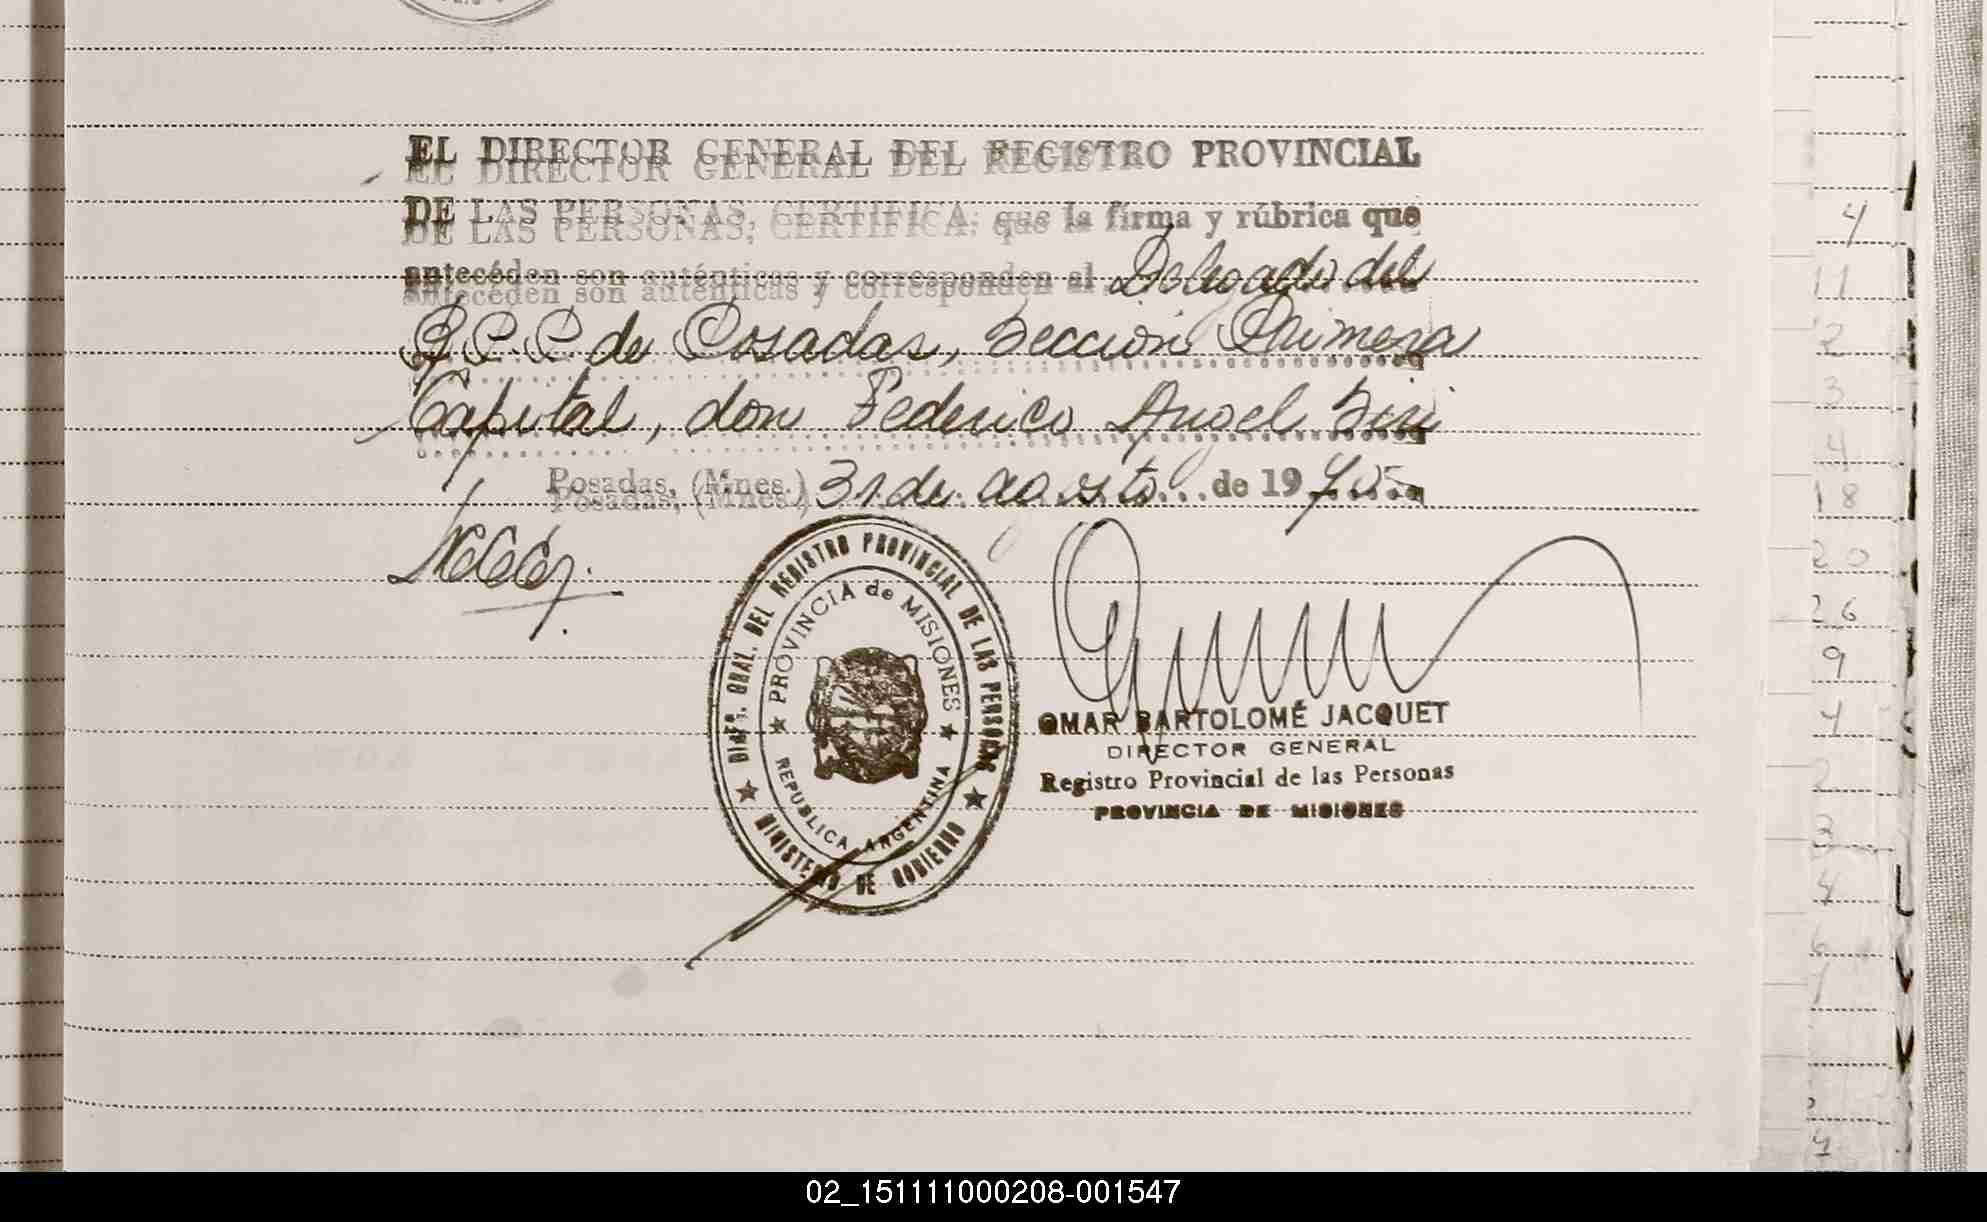 EL DIRECTOR GENERAL DEL REGISTRO PROVINCIAL
DE LAS PERSONAS, CERTIFICA: que la firma y rúbrica que
antecéden son auténticas y corresponden al Delegado del
R.P.P. de Posadas, Sección Primera
Capital, don Federico Angel Siri
Posadas, (Mnes.) 31 de agosto de 1970
DIREC. GRAL. DEL REGISTRO PROVINCIAL DE LAS PERSONAS
PROVINCIA de MISIONES
REPUBLICA ARGENTINA
MINISTERIO DE GOBIERNO
OMAR BARTOLOMÉ JACQUET
DIRECTOR GENERAL
Registro Provincial de las Personas
PROVINCIA DE MISIONES
4
11
2
3
4
18
20
26
9
4
2
3
4
6
02_151111000208-001547